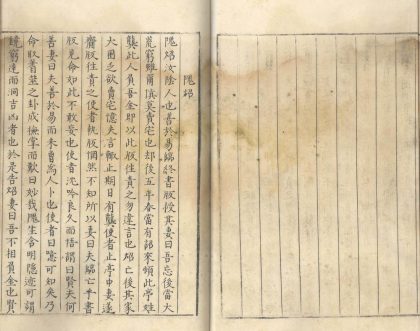 隗炤
隗炤汝陰人也善於易臨終書版授其妻曰吾亡後當大
荒窮雖爾慎莫賣宅也却後五年春當有詔來頓此亭姓
龔此人負吾金即以此版往責之勿違言也炤亡後其家
大困乏欲賣宅憶夫言輒止期日有龔使者止亭中妻遂
齎版往責之使者執版惘然不知所以妻曰夫臨亡手書
版見命如此不敢妄也使者沈吟良久而悟謂曰賢夫何
善妻曰夫善於易而未曾為人卜也使者曰噫可知矣乃
命取蓍筮之卦成撫掌而歎曰妙哉隗生含明隱迹可謂
鏡窮達而洞吉凶者也於是告炤妻曰吾不相負金也賢